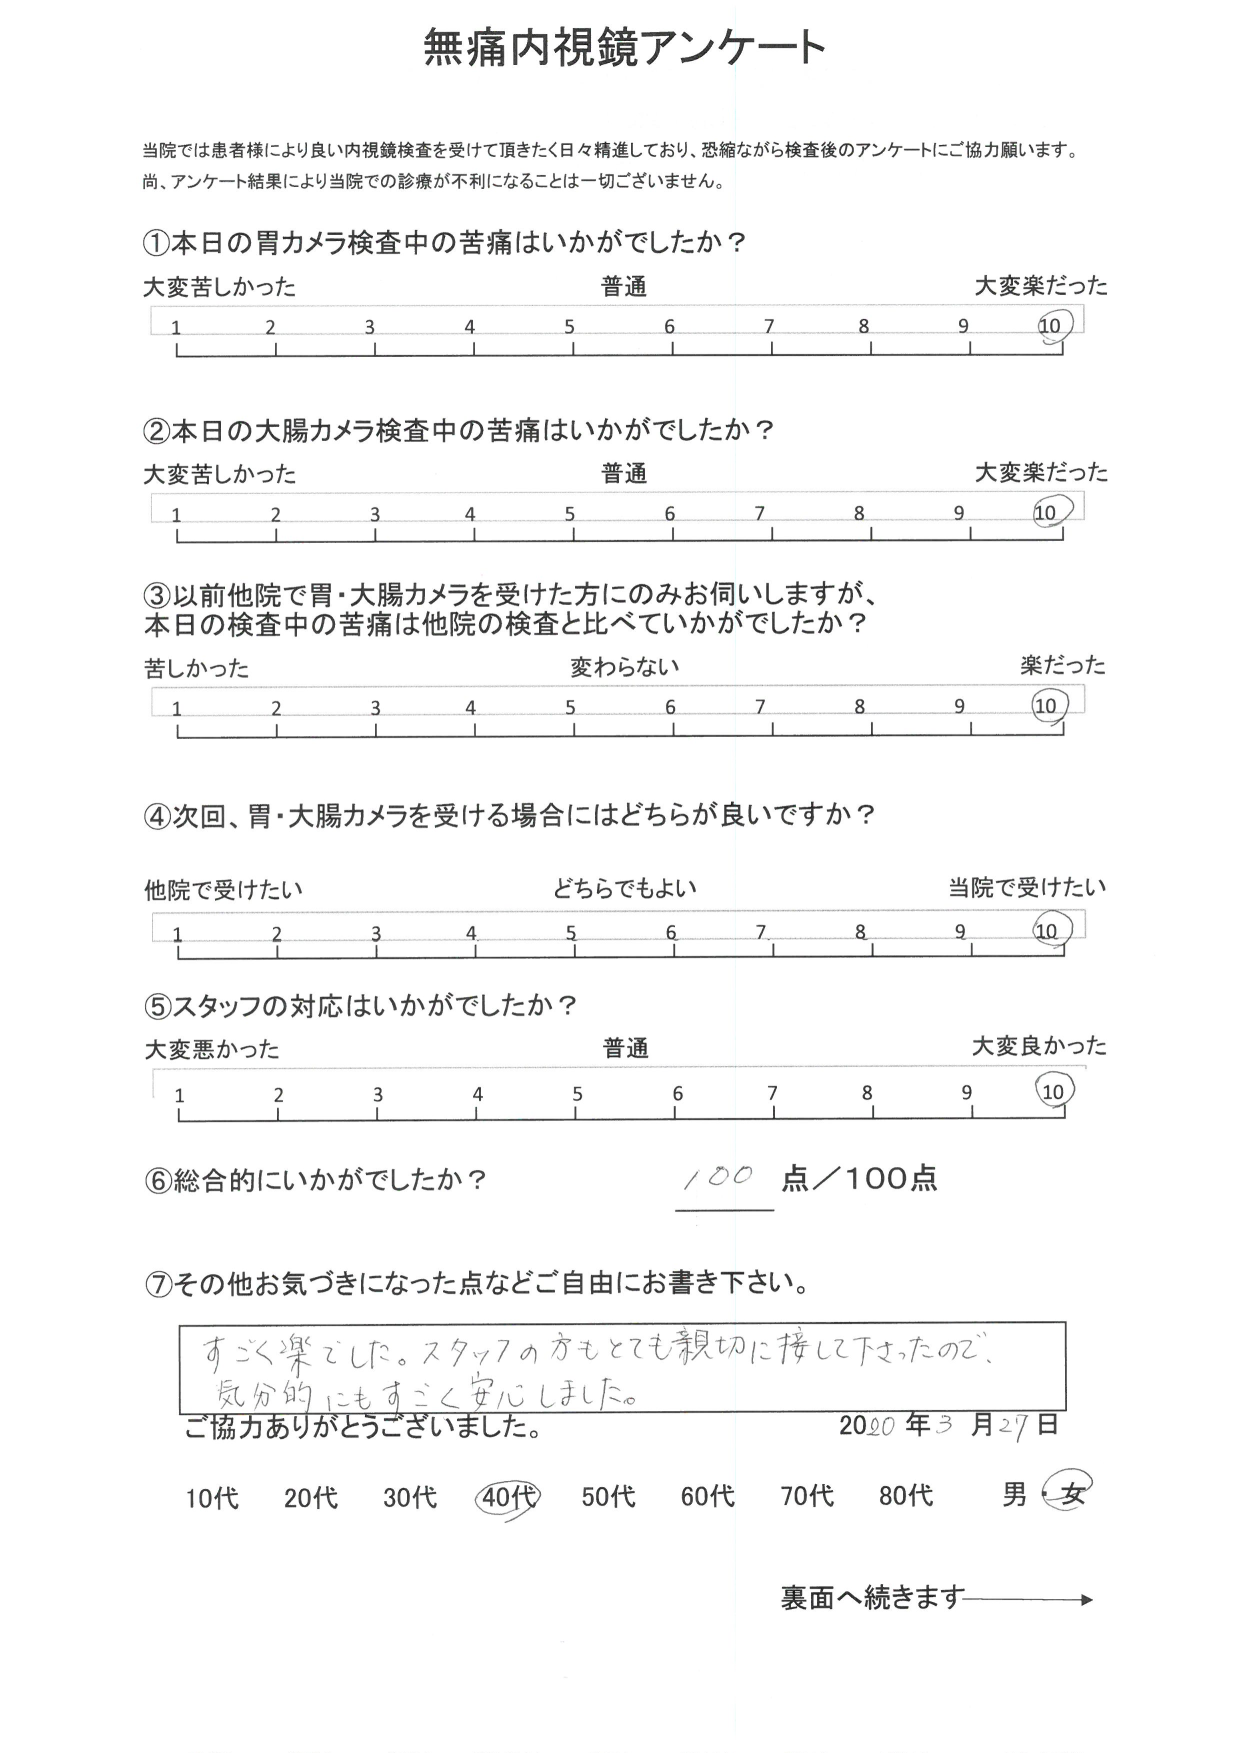 無痛内視鏡アンケート
当院では患者様により良い内視鏡検査を受けて頂きたく日々精進しており、恐縮ながら検査後のアンケートにご協力願います。
尚、アンケート結果により当院での診療が不利になることは一切ございません。
①本日の胃カメラ検査中の苦痛はいかがでしたか？
大変苦しかった 普通 大変楽だった
1 2 3 4 5 6 7 8 9 10
②本日の大腸カメラ検査中の苦痛はいかがでしたか？
大変苦しかった 普通 大変楽だった
1 2 3 4 5 6 7 8 9 10
③以前他院で胃・大腸カメラを受けた方にのみお伺いしますが、
本日の検査中の苦痛は他院の検査と比べていかがでしたか？
苦しかった 変わらない 楽だった
1 2 3 4 5 6 7 8 9 10
④次回、胃・大腸カメラを受ける場合にはどちらが良いですか？
他院で受けたい どちらでもよい 当院で受けたい
1 2 3 4 5 6 7 8 9 10
⑤スタッフの対応はいかがでしたか？
大変悪かった 普通 大変良かった
1 2 3 4 5 6 7 8 9 10
⑥総合的にいかがでしたか？ 100 点／100点
⑦その他お気づきになった点などご自由にお書き下さい。
すごく楽でした。スタッフの方もとても親切に接して下さったので、
気分的にもすごく安心しました。
ご協力ありがとうございました。 2020 年 3 月 27 日
10代 20代 30代 40代 50代 60代 70代 80代 男・女
裏面へ続きます